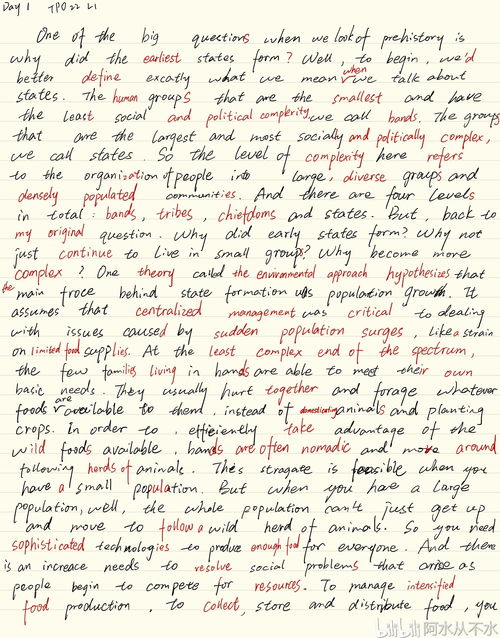 Day 1 TPO 22 L1
One of the big questions when we look of prehistory is
why did the earliest states form? Well, to begin, we'd
better define excatly what we mean when we talk about
states. The human groups that are the smallest and have
the least social and political complexity we call bands. The groups
that are the largest and most socially and politically complex,
we call states. So the level of complexity here refers
to the organisation of people into large, diverse groups and
densely populated communities. And there are four levels
in total: bands, tribes, chiefdoms and states. But, back to
my original question. Why did early states form? Why not
just continue to live in small groups? Why become more
complex? One theory called the environmental approach hypothesizes that
the main froce behind state formation was population growth. It
assumes that centralized management was critical to dealing
with issues caused by sudden population surges, like a strain
on limited food supplies. At the least complex end of the spectrum,
the few families living in bands are able to meet their own
basic needs. They usually hurt together and forage whatever
foods are available to them, instead of domesticating animals and planting
crops. In order to efficiently take advantage of the
wild foods available, bands are often nomadic and move around
following herds of animals. This stragate is feasible when you
have a small population. But when you have a large
population, well, the whole population can't just get up
and move to follow a wild herd of animals. So you need
sophisticated technologies to produce enough food for everyone. And there
is an increace needs to resolve social problems that arise as
people begin to compete for resources. To manage intensified
food production, to collect, store and distribute food, you
bilibili 阿水从不水